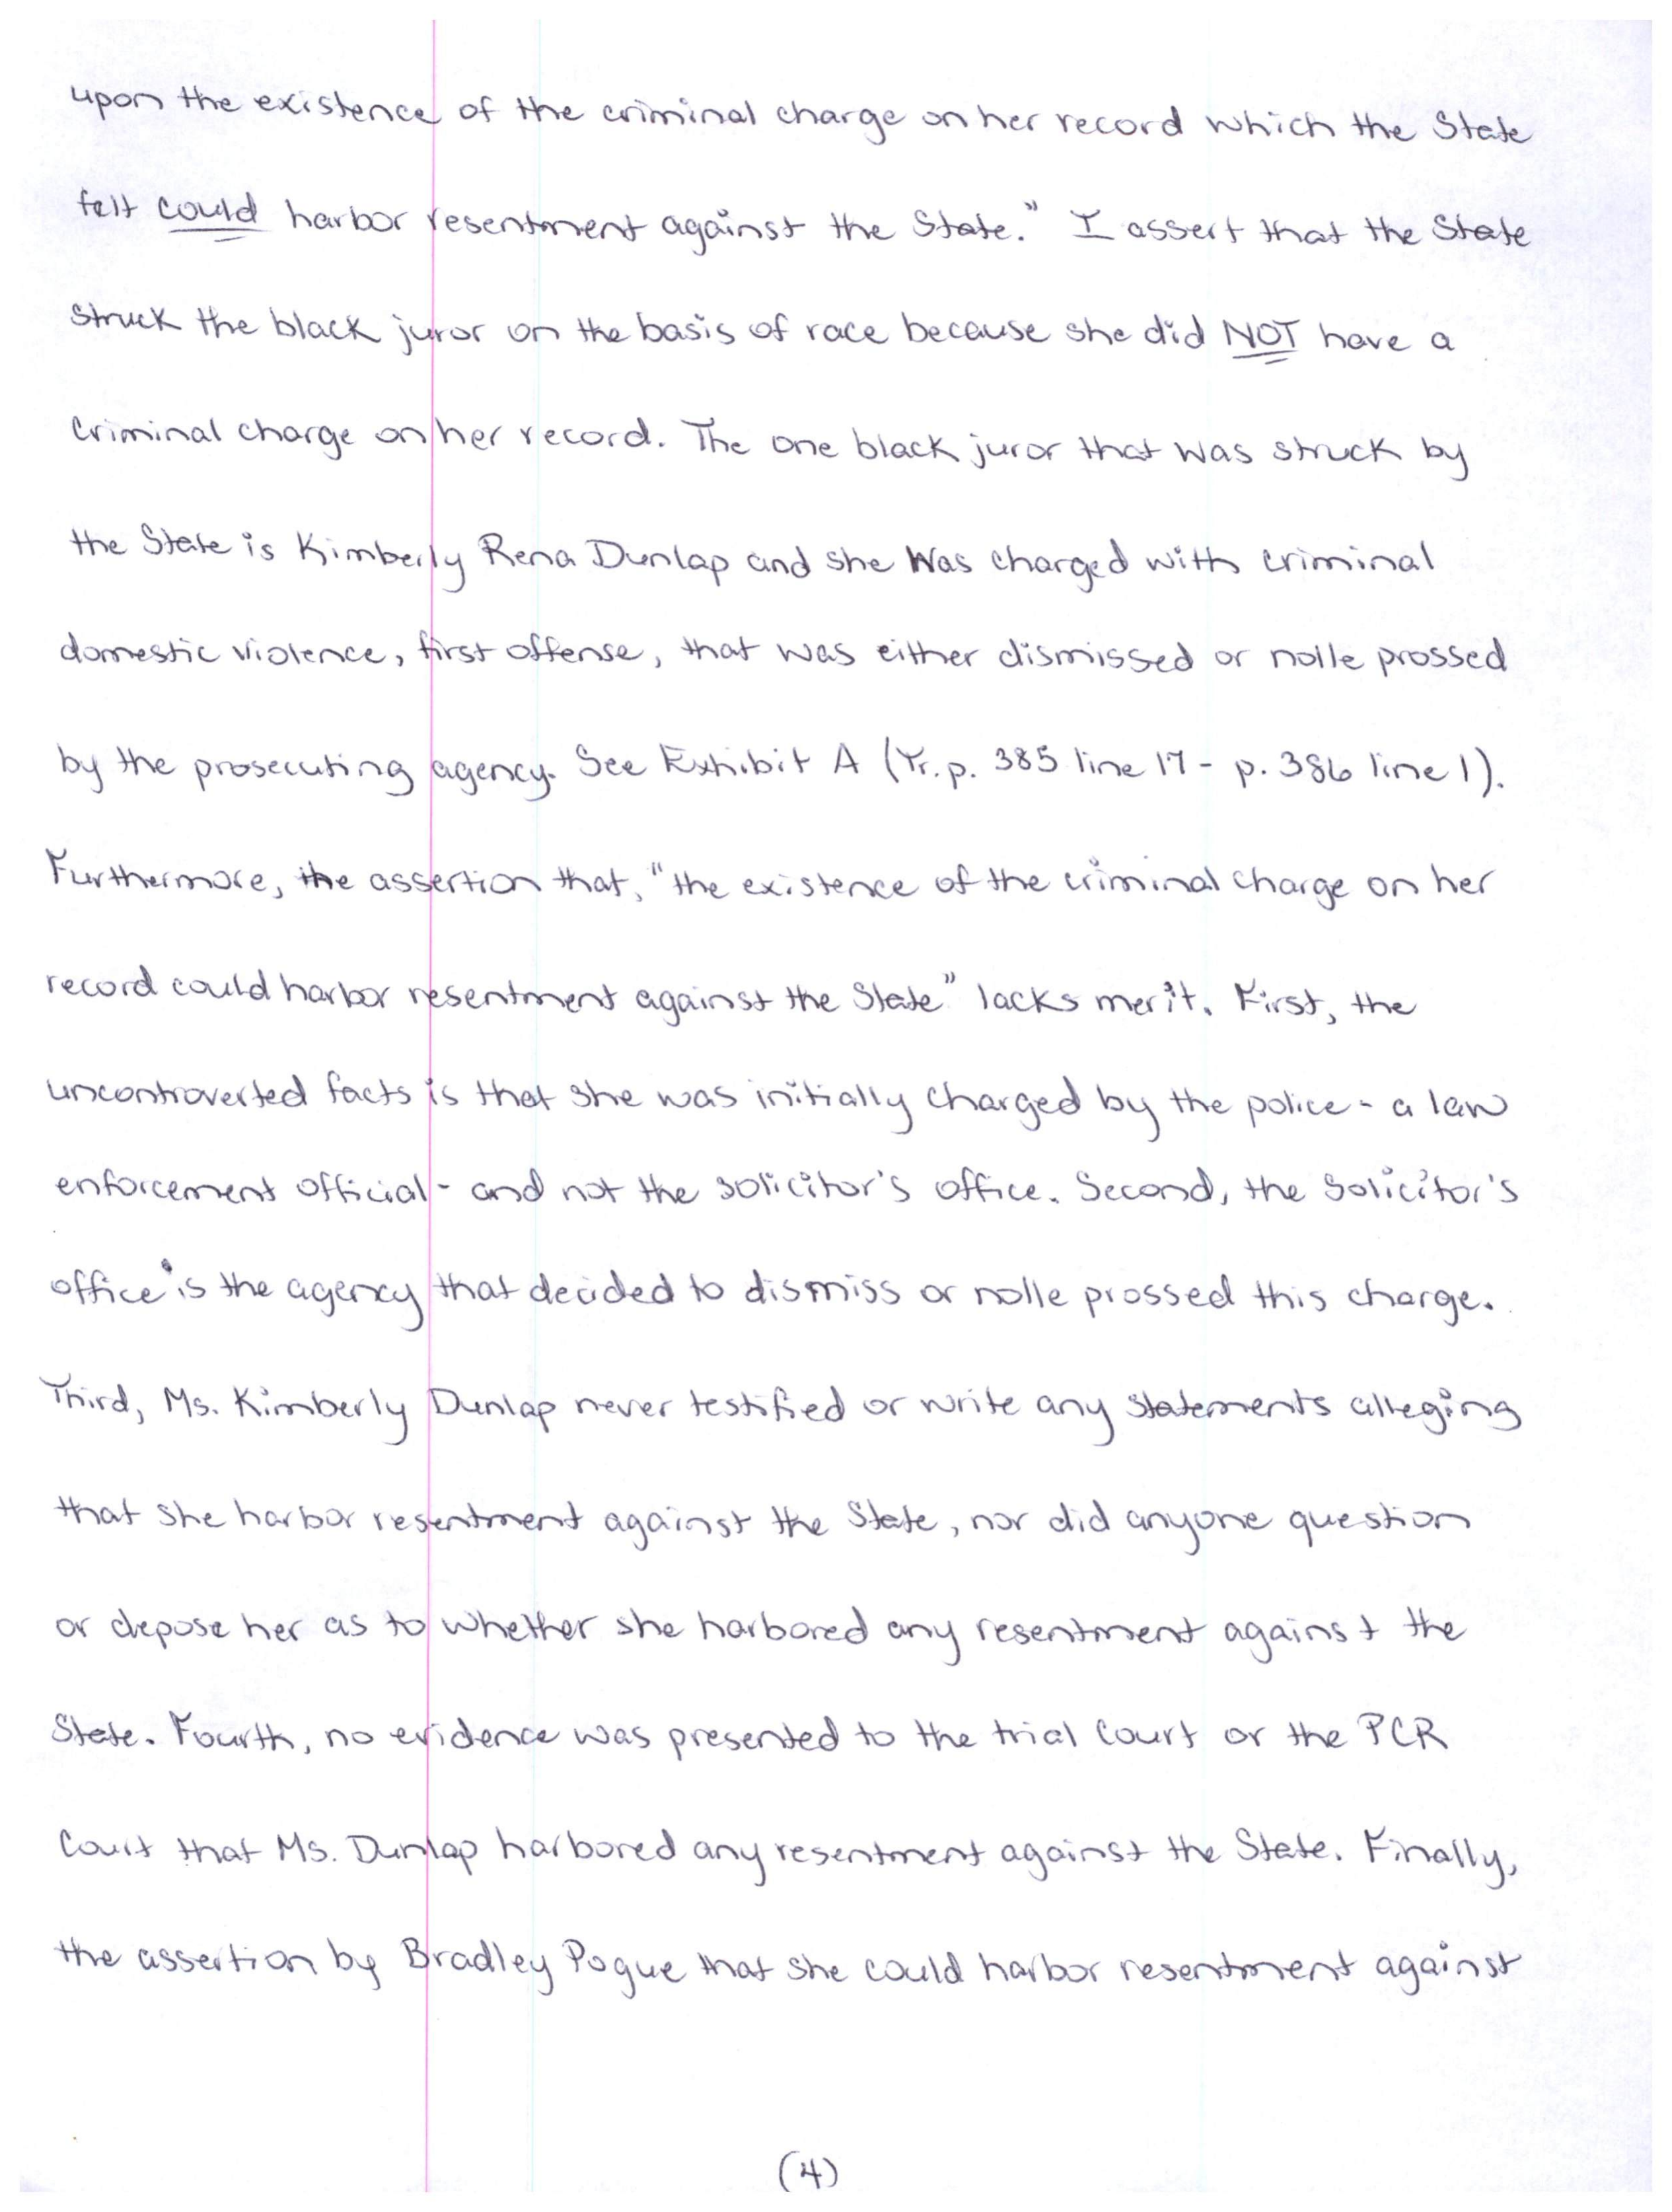 upon the existence of the criminal charge on her record which the State
felt could harbor resentment against the State." I assert that the State
struck the black juror on the basis of race because she did NOT have a
criminal charge on her record. The one black juror that was struck by
the State is Kimberly Rena Dunlap and she was charged with criminal
domestic violence, first offense, that was either dismissed or nolle prossed
by the prosecuting agency. See Exhibit A (Tr. p. 385 line 17 - p. 386 line 1).
Furthermore, the assertion that, "the existence of the criminal charge on her
record could harbor resentment against the State" lacks merit. First, the
uncontroverted facts is that she was initially charged by the police - a law
enforcement official - and not the solicitor's office. Second, the solicitor's
office is the agency that decided to dismiss or nolle prossed this charge.
Third, Ms. Kimberly Dunlap never testified or write any statements alleging
that she harbor resentment against the State, nor did anyone question
or depose her as to whether she harbored any resentment against the
State. Fourth, no evidence was presented to the trial court or the PCR
Court that Ms. Dunlap harbored any resentment against the State. Finally,
the assertion by Bradley Pogue that she could harbor resentment against
(4)